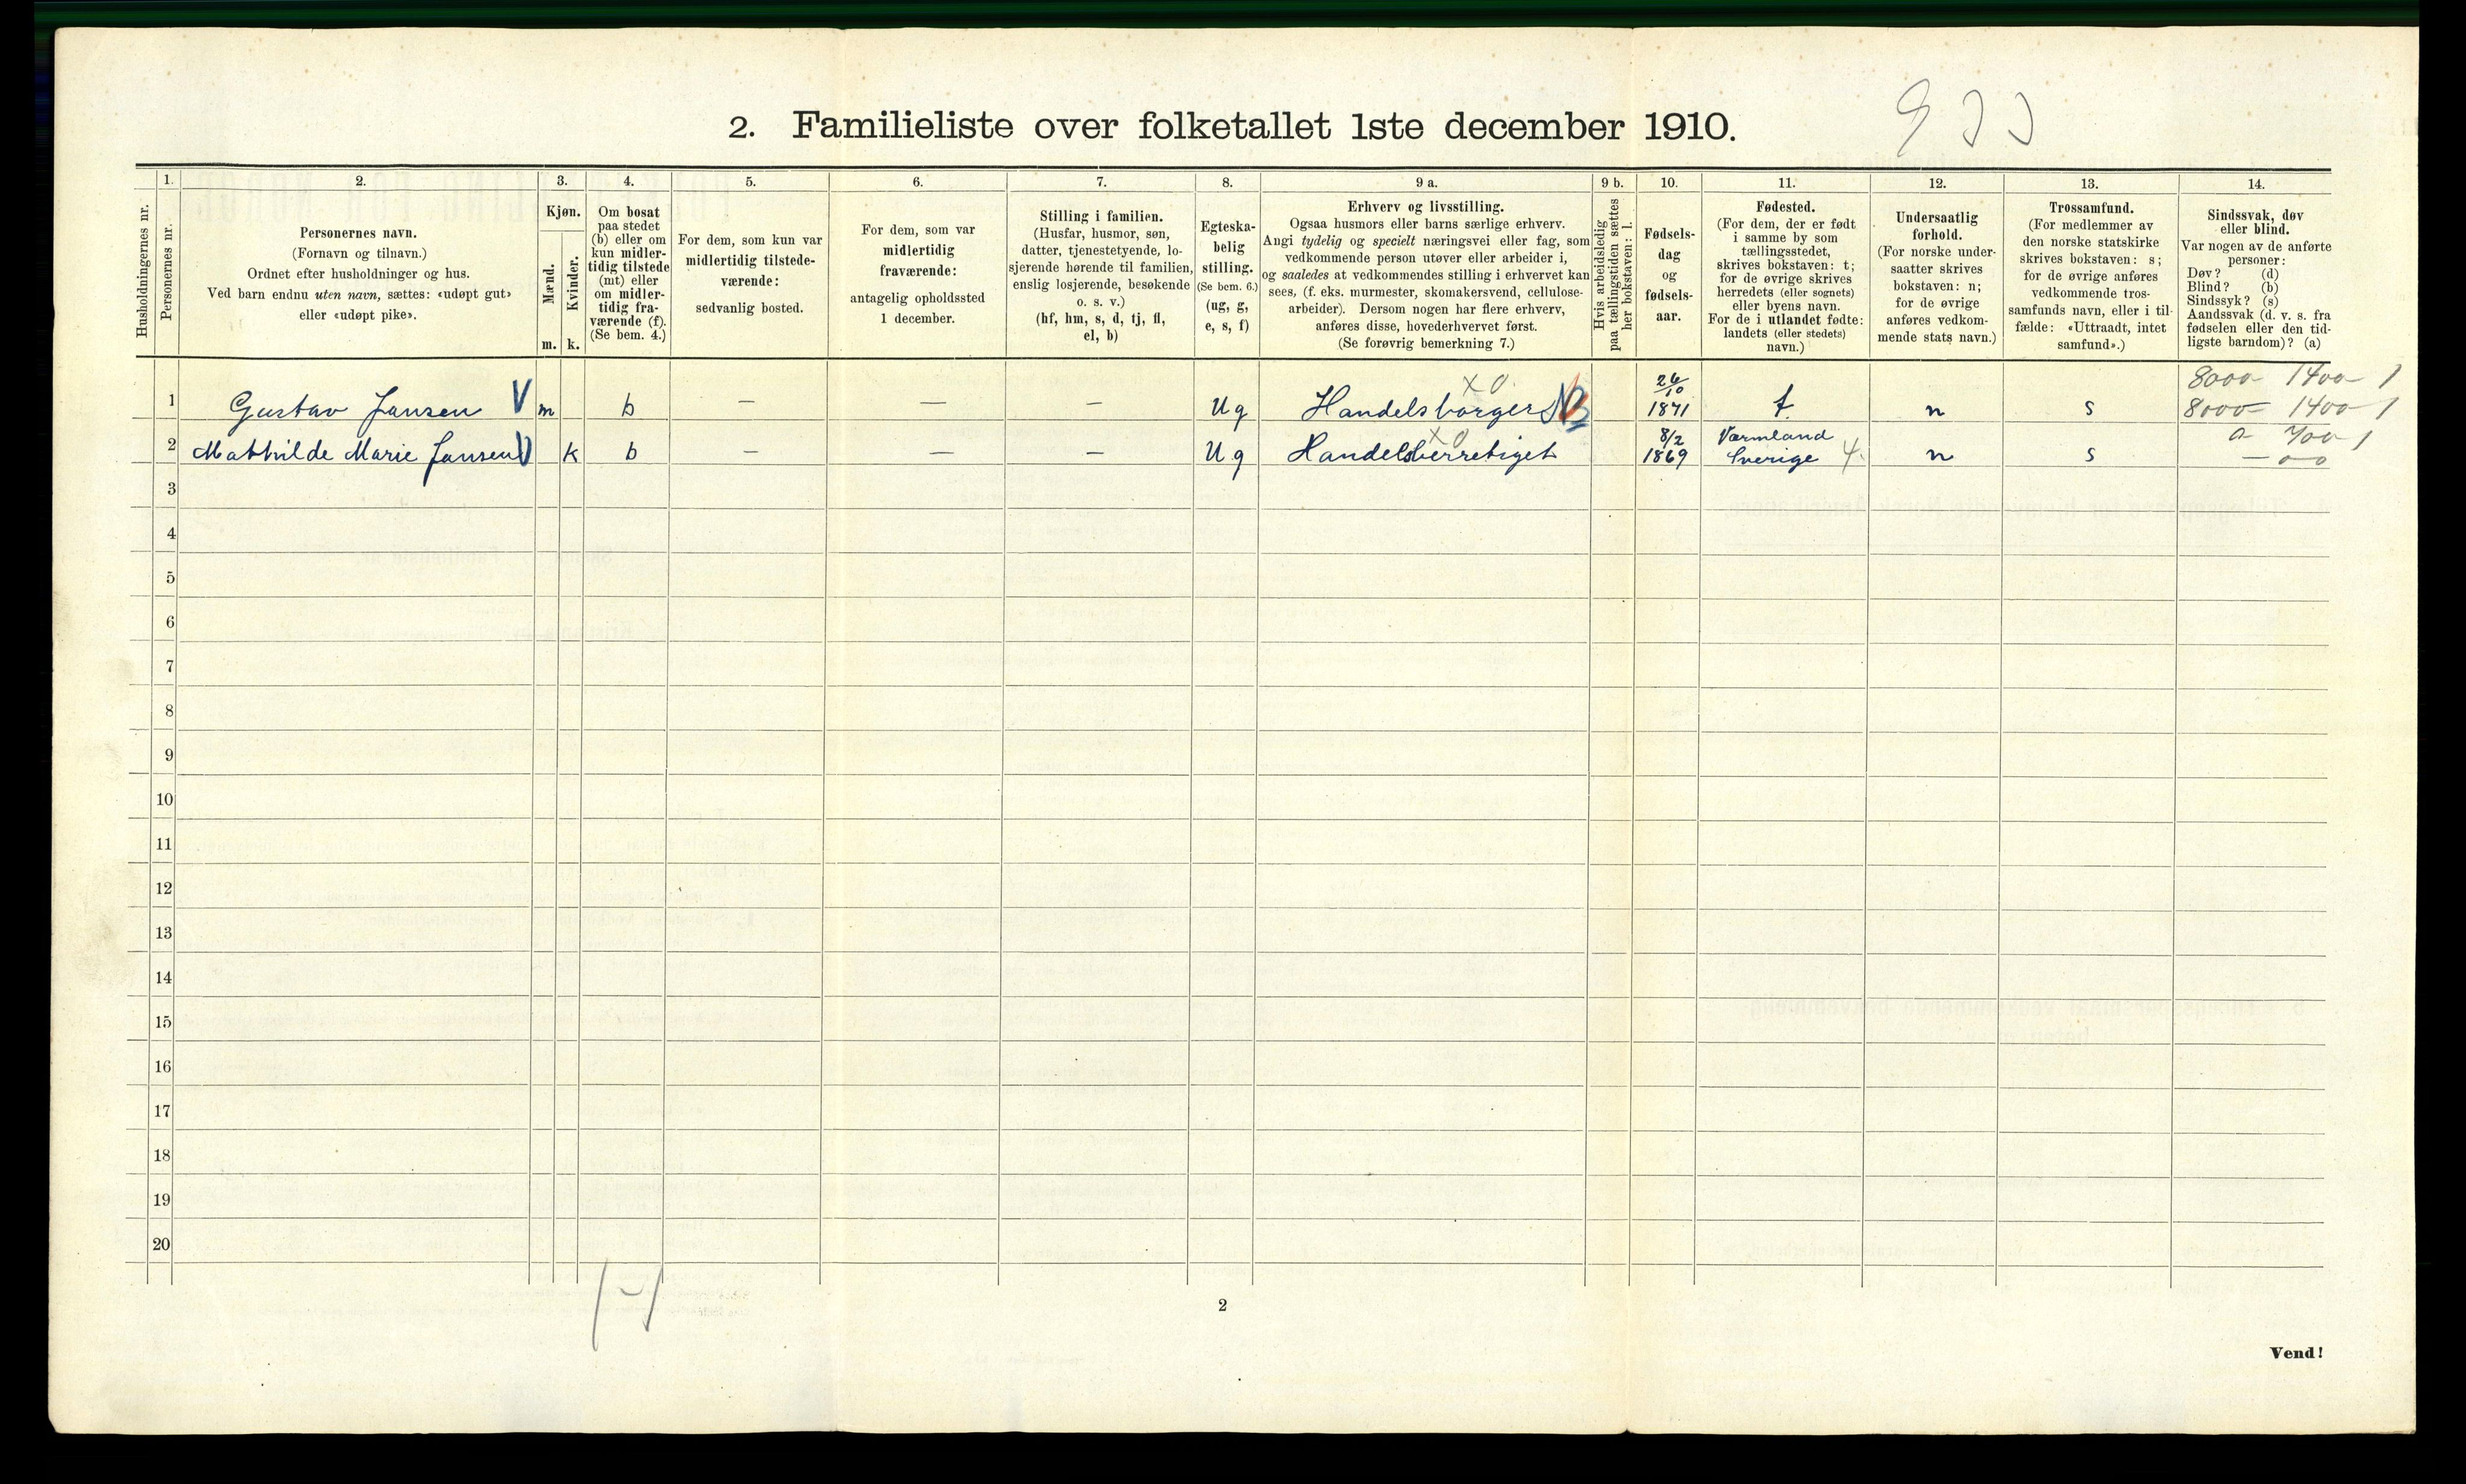 2. Familieliste over folketallet 1ste december 1910.
1. 2. 3. 4. 5. 6. 7. 8. 9 a. 9 b. 10. 11. 12. 13. 14.
Husholdningernes nr.
Personernes nr.
Personernes navn.
(Fornavn og tilnavn.)
Ordnet efter husholdninger og hus.
Ved barn endnu uten navn, sættes: «udøpt gut»
eller «udøpt pike».
Kjøn.
Mænd.
Kvinder.
m. k.
Om bosat
paa stedet
(b) eller om
kun midler-
tidig tilstede
(mt) eller
om midler-
tidig fra-
værende (f).
(Se bem. 4.)
For dem, som kun var
midlertidig tilstede-
værende:
sedvanlig bosted.
For dem, som var
midlertidig
fraværende:
antagelig opholdssted
1 december.
Stilling i familien.
(Husfar, husmor, søn,
datter, tjenestetyende, lo-
sjerende hørende til familien,
enslig losjerende, besøkende
o. s. v.)
(hf, hm, s, d, tj, fl,
el, b)
Egteska-
belig
stilling.
(Se bem. 6.)
(ug, g,
e, s, f)
Erhverv og livsstilling.
Ogsaa husmors eller barns særlige erhverv.
Angi tydelig og specielt næringsvei eller fag, som
vedkommende person utøver eller arbeider i,
og saaledes at vedkommendes stilling i erhvervet kan
sees, (f. eks. murmester, skomakersvend, cellulose-
arbeider). Dersom nogen har flere erhverv,
anføres disse, hovederhvervet først.
(Se forøvrig bemerkning 7.)
Hvis arbeidsledig
paa tællingstiden sættes
her bokstaven: l.
Fødsels-
dag
og
fødsels-
aar.
Fødested.
(For dem, der er født
i samme by som
tællingsstedet,
skrives bokstaven: t;
for de øvrige skrives
herredets (eller sognets)
eller byens navn.
For de i utlandet fødte:
landets (eller stedets)
navn.)
Undersaatlig
forhold.
(For norske under-
saatter skrives
bokstaven: n;
for de øvrige
anføres vedkom-
mende stats navn.)
Trossamfund.
(For medlemmer av
den norske statskirke
skrives bokstaven: s;
for de øvrige anføres
vedkommende tros-
samfunds navn, eller i til-
fælde: «Uttraadt, intet
samfund».)
Sindssvak, døv
eller blind.
Var nogen av de anførte
personer:
Døv? (d)
Blind? (b)
Sindssyk? (s)
Aandssvak (d. v. s. fra
fødselen eller den tid-
ligste barndom)? (a)
x 0. 26/10 8000 1400 1
1 Gustav Jansen V m b — — — Ug Handelsborger 1871 t n s 8000 1400 1
x 0 8/2 Værmland 0 700 1
2 Mathilde Marie Jansen V k b — — — Ug Handelsberretiget 1869 Sverige 4. n s
3
4
5
6
7
8
9
10
11
12
13
14
15
16
17
18
19
20
1-1
2
Vend!